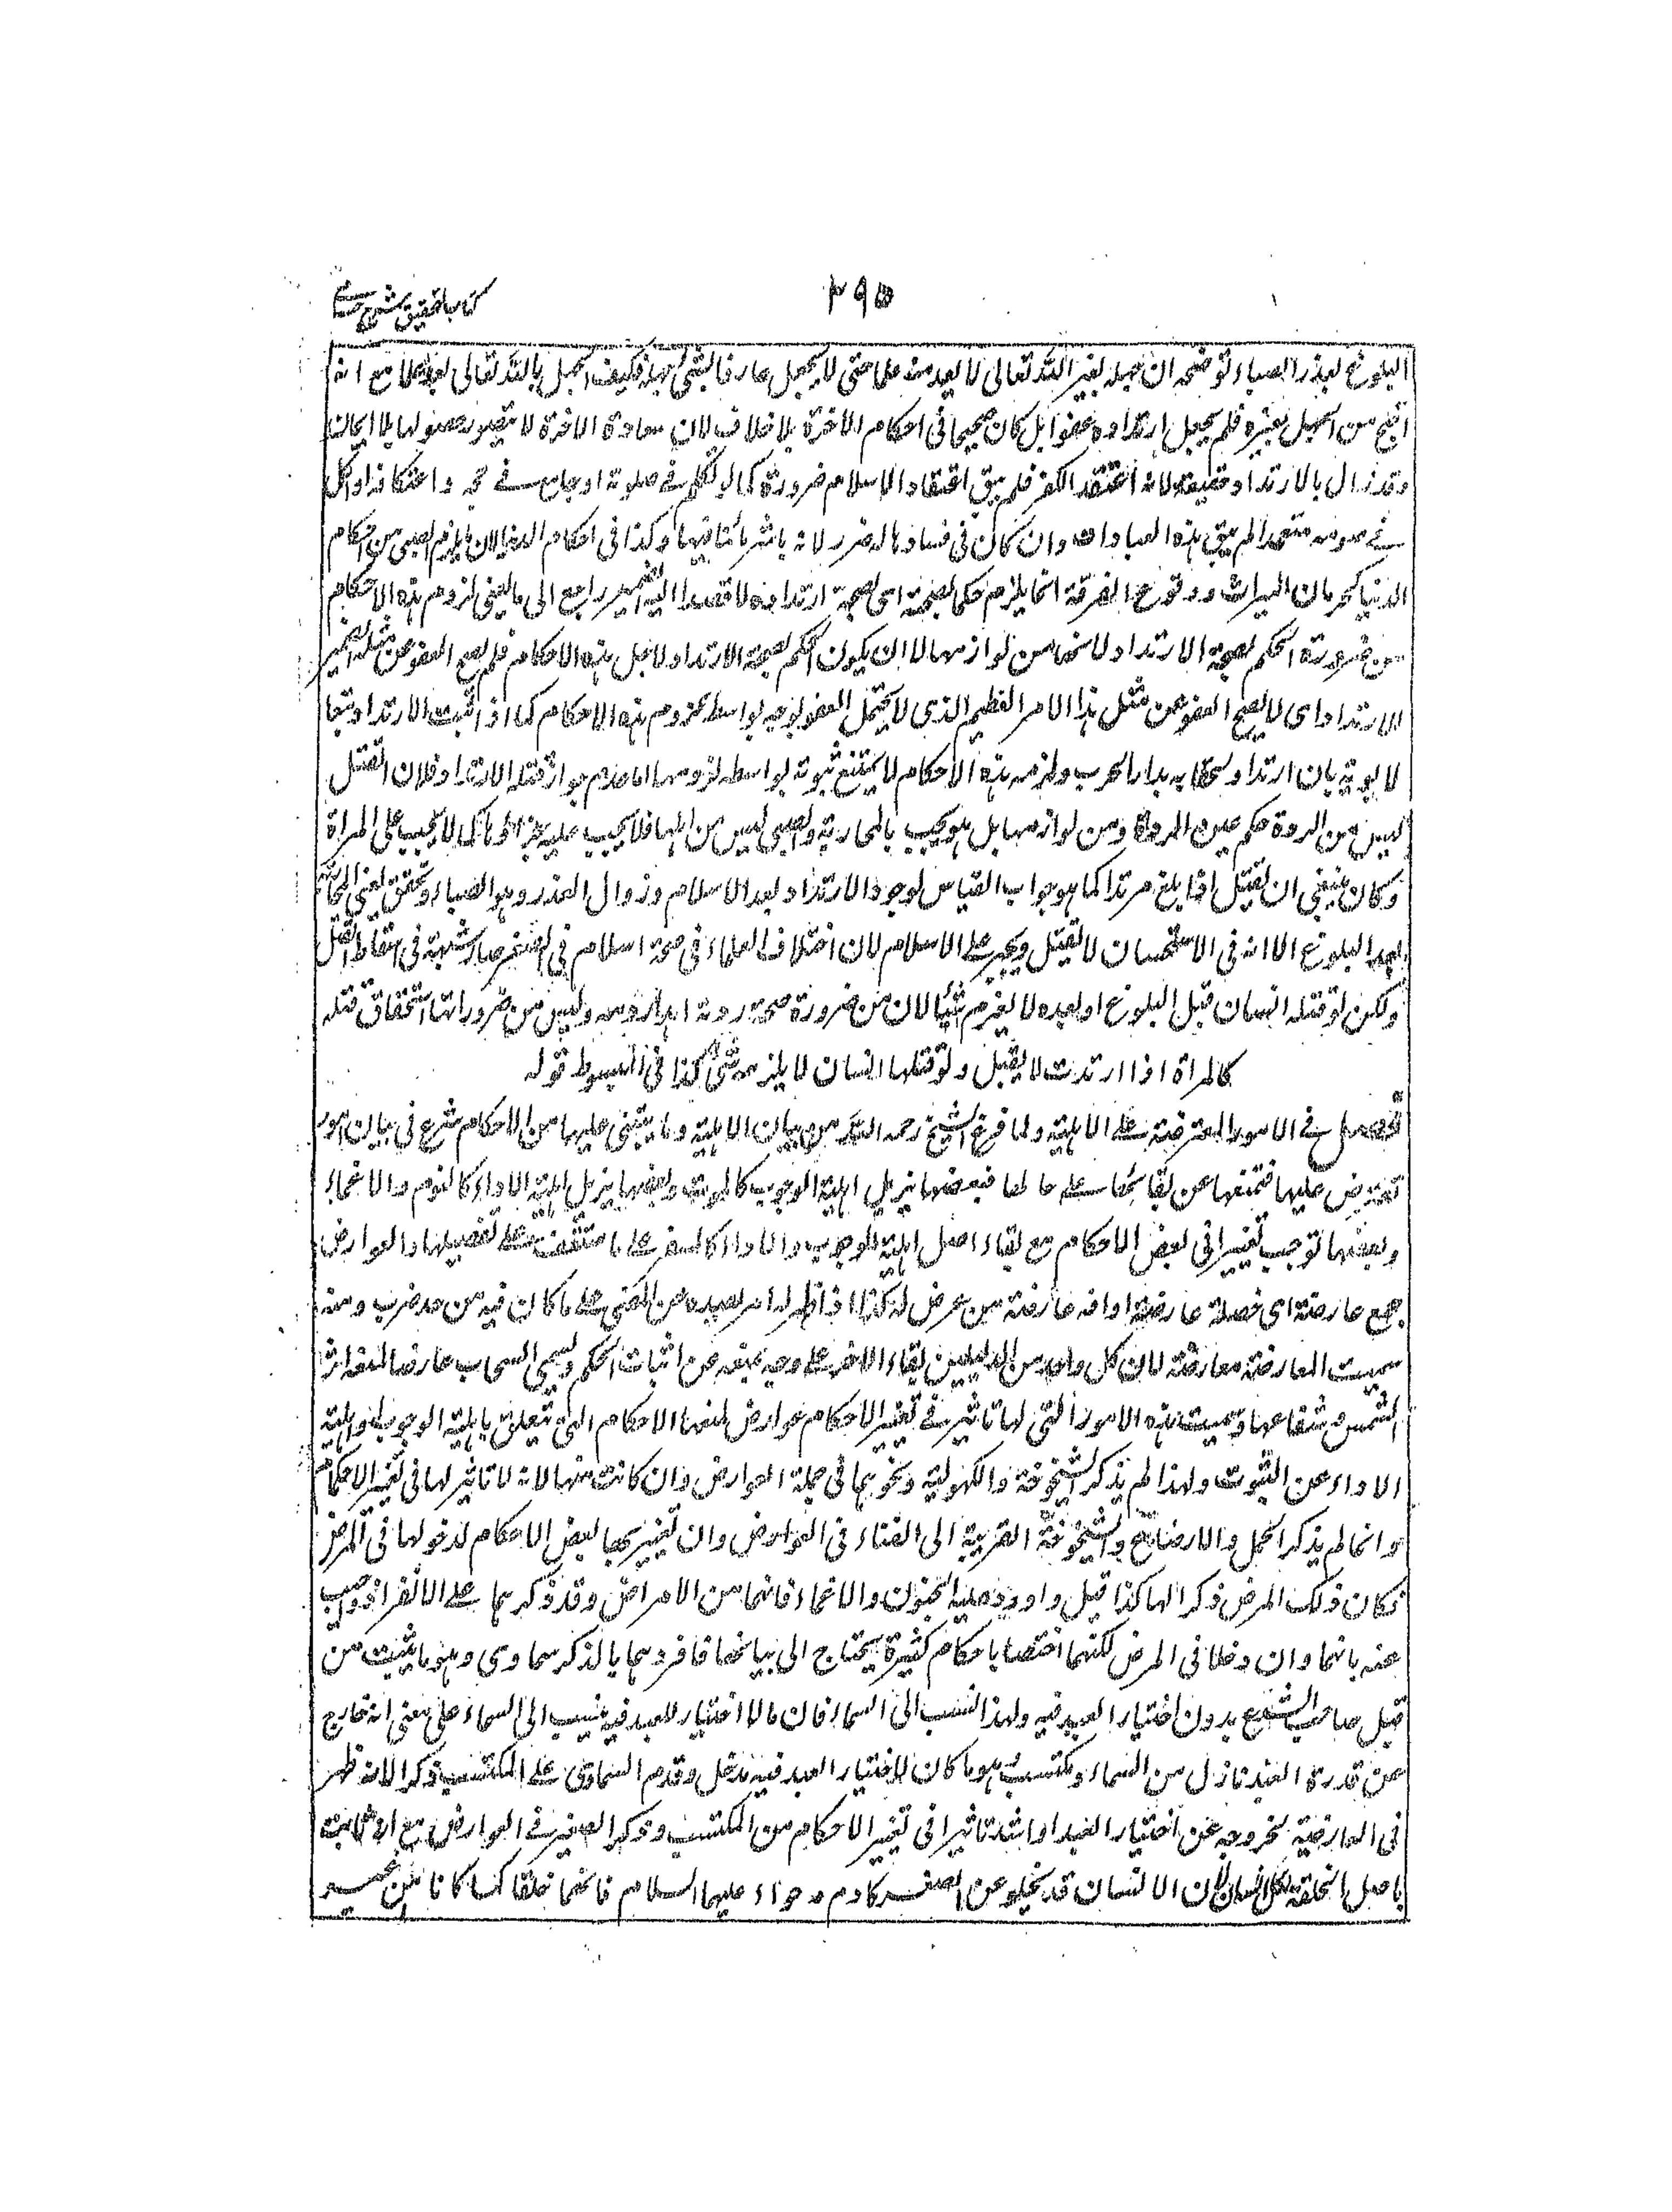 ٢٩٥
كتاب التحقيق شرح حسامى
البلوغ بعذر الصباء توضيحه ان جهله بغير الله تعالى لا يعد منه علما حتى لا يجعل عارفا بشئ جهله فكيف الجهل بالله تعالى يعد علما مع انه
اقبح من الجهل بغيره فلم يجعل ارتداده عفوا بل كان صحيحا فى احكام الاخرة بلا خلاف لان سعادة الاخرة لا يتصور حصولها بلا ايمان
وقد زال بالارتداد حقيقة لانه اعتقد الكفر فلم يبق اعتقاد الاسلام ضرورة كما لو تكلم فے صلوته او جامع فے حجه و اعتكافه او اكل
فے صومه متعمدا لم يبق هذه العبادات وان كان فى فسادها له ضرر لانه باشر ما ينافيها وكذا فى احكام الدنيا لان ما يلزم الصبى من احكام
الدنيا كحرمان الميراث ووقوع الفرقة انما يلزم حكما لصحته اى لصحة ارتداده لا قصدا اليه الضمير راجع الى ما يعنى لزوم هذه الاحكام
من ضرورة الحكم بصحة الارتداد لانها من لوازمها لا ان يكون الحكم بصحة الارتداد لاجل هذه الاحكام فلم يصح العفو عن مثله الضمير
للارتداد اى لا يصح العفو عن مثل هذا الامر العظيم الذى لا يحتمل العفو بوجه بواسطة لزوم هذه الاحكام كما اذا ثبت الارتداد تبعا
لابويه بان ارتدا ولحقا به بدار الحرب ولزمه هذه الاحكام لا يمتنع ثبوته بواسطة لزومها اما عدم جواز قتله بالارتداد فلان القتل
ليس من الردة حكم عين الردة ومن لوازمها بل هو يجب بالمحاربة والصبى ليس من اهلها فلا يجب عليه جزاؤها كما لا يجب على المراة
وكان ينبغى ان يقتل اذا بلغ مرتدا كما هو جواب القياس لوجود الارتداد بعد الاسلام وزوال العذر وهو الصباء وتحقق معنى المحاربة
بعد البلوغ الا انه فى الاستحسان لا يقتل ويجبر على الاسلام لان اختلاف العلماء فى صحة اسلامه فى الصغر صار شبهة فى اسقاط القتل
ولكن لو قتله انسان قبل البلوغ او بعده لا يغرم شيئا لان من ضرورة صحة ردته اهدار دمه وليس من ضروراتها استحقاق قتله
كالمراة اذا ارتدت لا يقتل ولو قتلها انسان لا يلزمه شئ كذا فى المبسوط قوله
فصل فے الامور المعترضة على الاهلية ولما فرغ الشيخ رحمه الله من بيان الاهلية وما يبتنى عليها من الاحكام شرع فى بيان امور
تعترض عليها فتمنعها عن بقائها على حالها فبعضها يزيل اهلية الوجوب كالموت وبعضها يزيل اهلية الاداء كالنوم والاغماء
وبعضها توجب تغييرا فى بعض الاحكام مع بقاء اصل اهلية الوجوب والاداء كالسفر على ما ستقف على تفصيلها والعوارض
جمع عارضة اى خصلة عارضة او افة عارضة من عرض له كذا اذا ظهر له امر يصده عن المضى على ما كان فيه من حد ضرب ومنه
سميت المعارضة معارضة لان كل واحد من الدليلين يقابل الاخر على وجه يمنعه عن اثبات الحكم ويسمى السحاب عارضا لمنعه اثر
الشمس وشعاعها وسميت هذه الامور التى لها تاثير فے تغيير الاحكام عوارض لمنعها الاحكام التى تتعلق باهلية الوجوب او اهلية
الاداء عن الثبوت ولهذا لم يذكر الشيخوخة والكهولة ونحوهما فى جملة العوارض وان كانت منها لانه لا تاثير لها فى تغيير الاحكام
وانما لم يذكر الحمل والارضاع والشيخوخة القريبة الى الفناء فى العوارض وان تغير بها بعض الاحكام لدخولها فى المرض
فكان ذلك المرض ذكرا لها كذا قيل واورد عليه الجنون والاغماء فانهما من الامراض وقد ذكرهما على الانفراد واجيب
عنه بانهما وان دخلا فى المرض لكنهما اختصا باحكام كثيرة يحتاج الى بيانها فافردهما بالذكر سماوى وهو ما يثبت من
قبل صاحب الشرع بدون اختيار العبد فيه ولهذا نسب الى السماء فان ما لا اختيار للعبد فيه ينسب الى السماء على معنى انه خارج
عن قدرة العبد نازل من السماء ومكتسب وهو ما كان لاختيار العبد فيه مدخل وقدم السماوى على المكتسب ذكرا لانه اظهر
فى العارضية لخروجه عن اختيار العبد او اشد تاثيرا فى تغيير الاحكام من المكتسب وذكر الصغر فے العوارض مع انه ثابت
باصل الخلقة لكل انسان لان الانسان قد يخلو عن الصغر كادم وحواء عليهما السلام فانهما خلقا كما كانا من غير